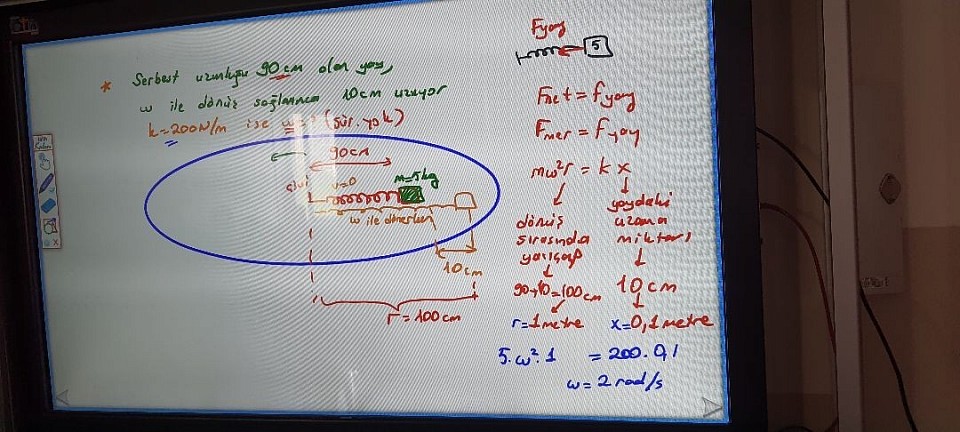 * Serbest uzunluğu 90 cm olan yay,
w ile dönüş sağlanınca 10cm uzuyor
k=200N/m ise w=? (sür. yok)
90cm
v=0
m=5kg
w ile dönerken
10cm
r=100cm
Fyay
5
Fnet = fyay
Fmer = fyay
mω²r = k x
dönüş
sırasında
yarıçap
90+10=100cm
r=1metre
yaydaki
uzama
miktarı
10cm
x=0,1metre
5.ω².1 = 200.0,1
ω=2rad/s